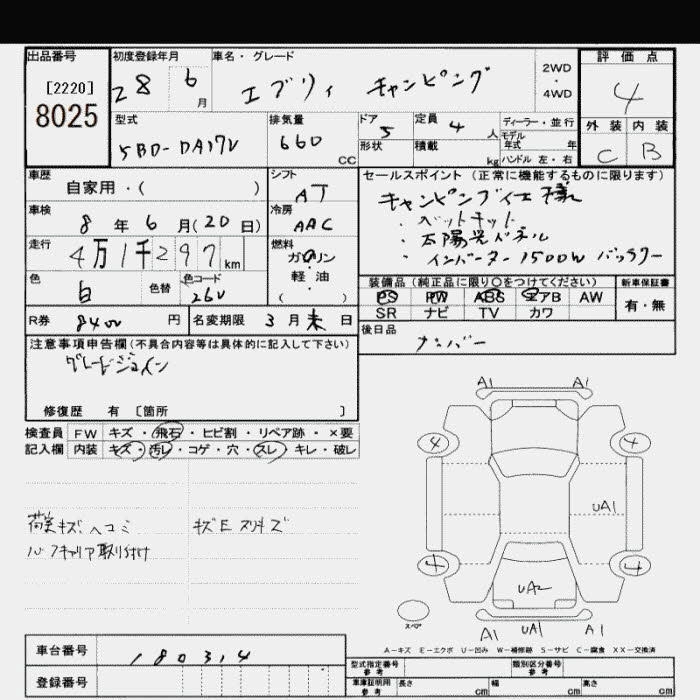 出品番号
[2220]
8025
初度登録年月
28 6 月
車名・グレード
エブリィ キャンピング
2WD
・
4WD
評価点
4
外装 内装
C B
型式
5BD-DA17V
排気量
660 CC
ドア
5
形状
定員
4 人
積載
kg
ディーラー・並行
モデル
年式 年
ハンドル 左・右
車歴
自家用・( )
シフト
AT
車検
8 年 6 月(20 日)
冷房
AAC
走行
4万1千297 km
燃料
ガソリン
・
軽油
・
( )
色
白
色替
色コード
26U
セールスポイント(正常に機能するものに限ります)
キャンピング仕様
・ベットキット
・太陽光パネル
・インバーター 1500W バッテリー
装備品(純正品に限り〇をつけてください)
PS PW ABS エアB AW
SR ナビ TV カワ
新車保証書
有・無
R券 8400 円
名変期限 3 月 末 日
後日品
ナンバー
注意事項申告欄(不具合内容等は具体的に記入して下さい)
グレードジョイン
修復歴 有 [箇所 ]
検査員 FW キズ・飛石・ヒビ割・リペア跡・×要
記入欄 内装 キズ・汚レ・コゲ・穴・スレ・キレ・破レ
荷室キズ ヘコミ
ルーフキャリア取り付け
キズE スリキズ
A1 A1
4 4
UA1
4 4
UA2
スペア
A1 UA1 A1
A-キズ E-エクボ U-凹み W-補修跡 S-サビ C-腐食 XX-交換済
車台番号 180314
登録番号
型式指定番号
参考
類別区分番号
参考
車庫証明用
参考
長さ cm
幅 cm
高さ cm